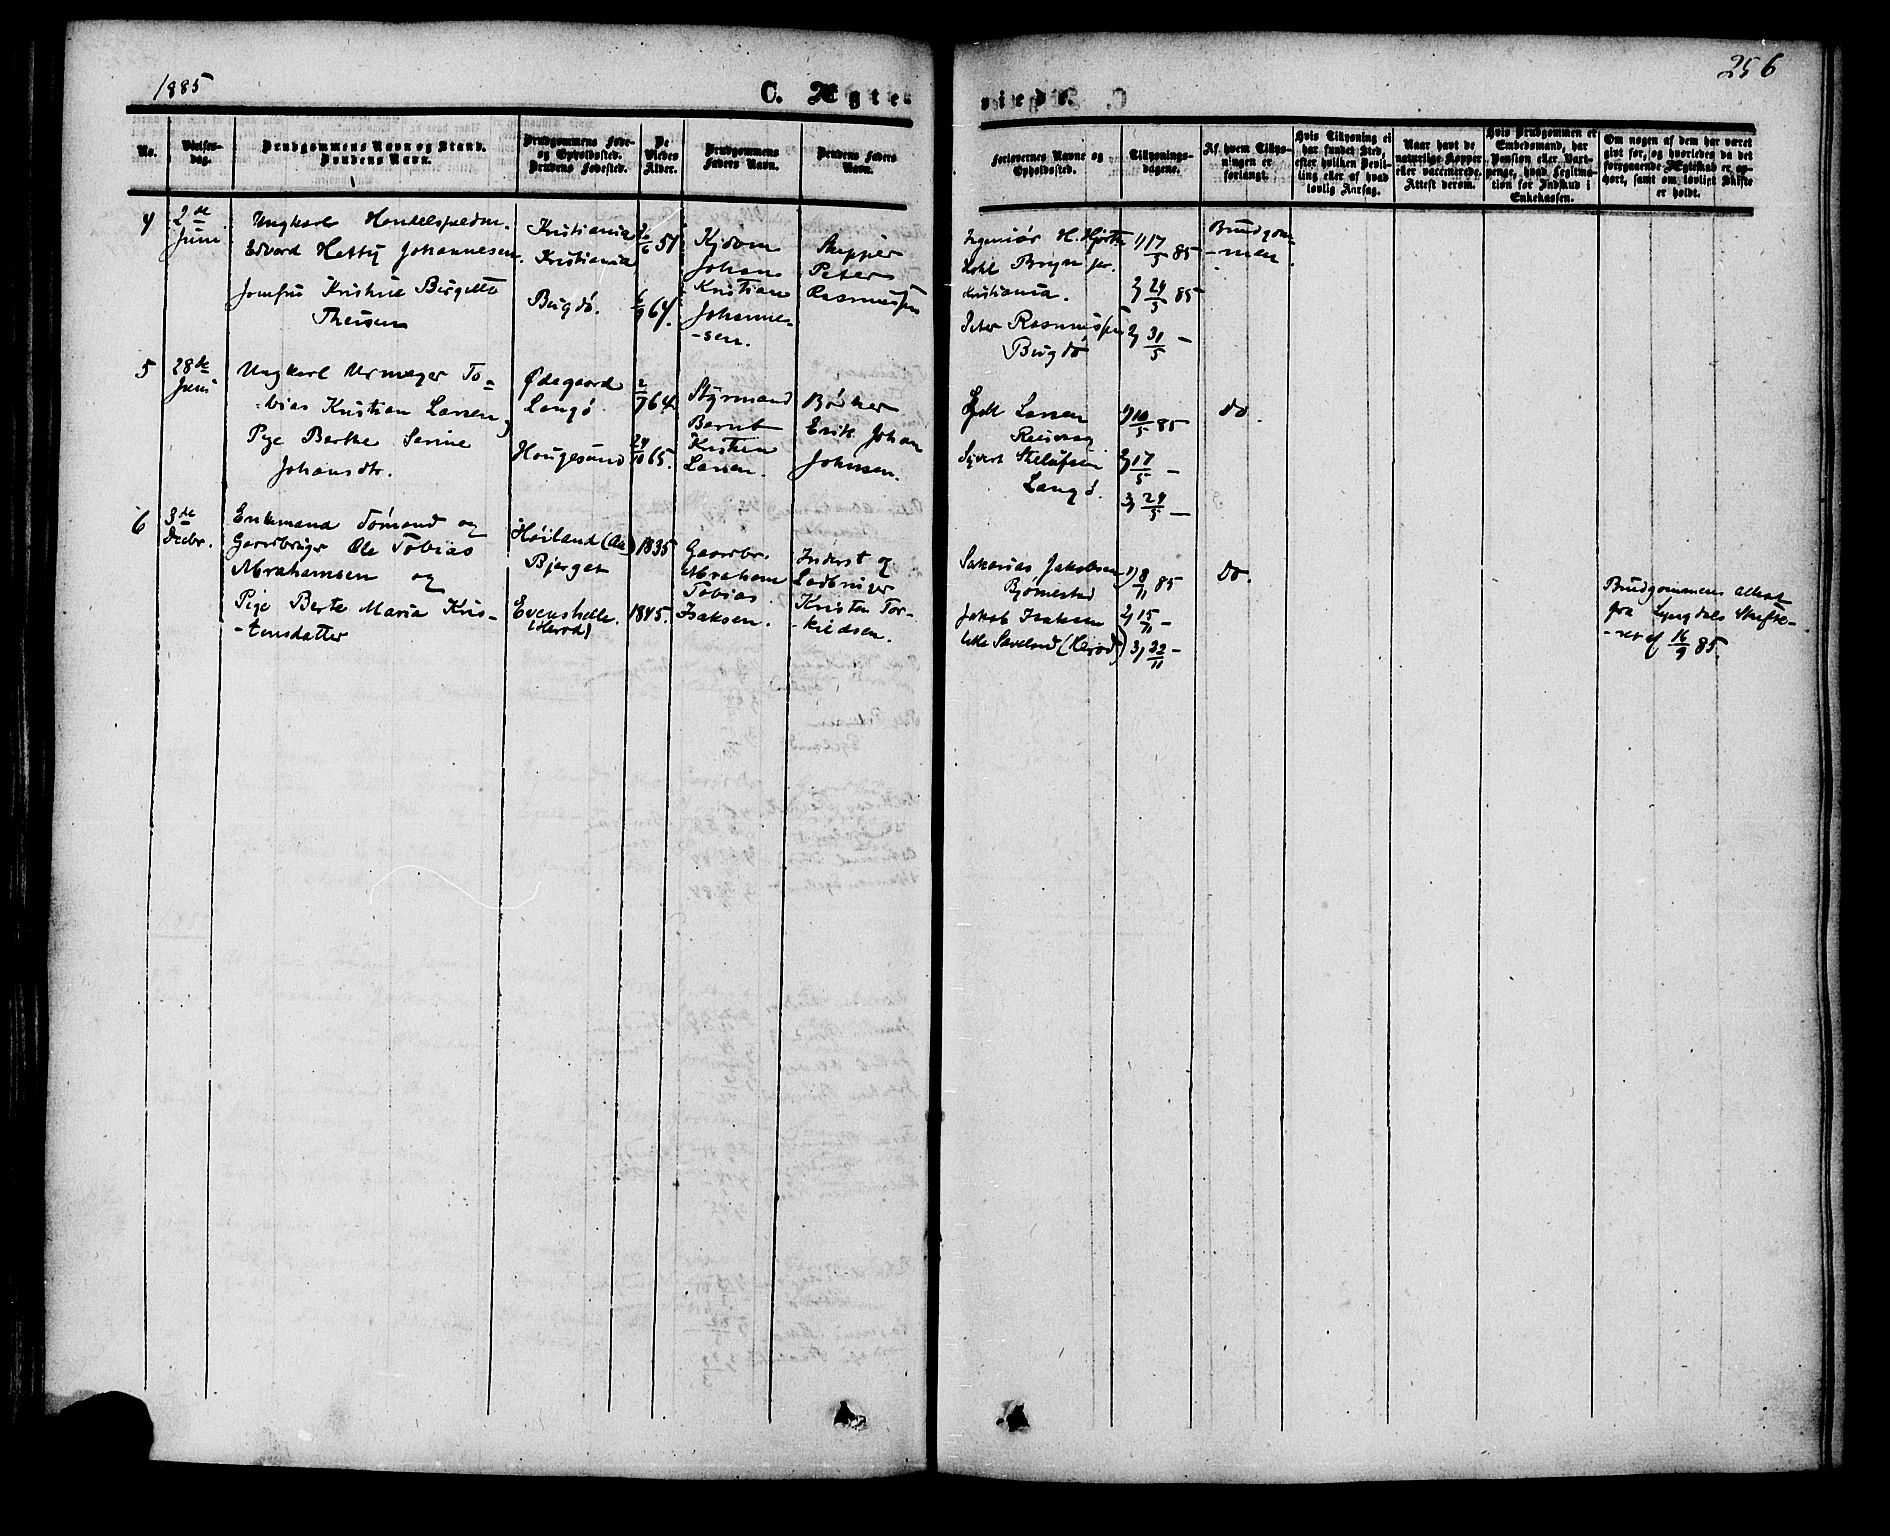 1885
256
C. Ægte-
viede.
No.
Vielses-
dag.
Brudgommens Navn og Stand.
Brudens Navn.
Brudgommens Føde-
og Opholdssted.
Brudens Fødested.
De
Viedes
Alder.
Brudgommens
Faders Navn.
Brudens Faders
Navn.
Forlovernes Navne og
Opholdssted.
Tillysnings-
dagene.
Af hvem Tillys-
ningen er
forlangt.
Hvis Tillysning ei
har fundet Sted,
efter hvilken Bevil-
ling eller af hvad
lovlig Aarsag.
Naar havt de
naturlige Kopper
eller vaccinerede.
Attest derom.
Hvis Brudgommen er
Embedsmand, har
Pension eller Vart-
penge, hvad Legitima-
tion for Indskud i
Enkekassen.
Om nogen af dem har været
gift før, og hvorledes da det
foregaaende Ægteskab er op-
hørt, samt om lovligt Skifte
er holdt.
4
2de
Juni
Ungkarl Handelsfuldm.
Edvard Hetty Johannesen.
Jomfru Kristine Birgitte
Theisen
Kristiania
Kristiania
Bugdø.
6 51
6/9 64.
Kjdom
Johan
Kristian
Johanne-
-sen.
Skipper
Peter
Rasmussen
Ingeniør H. Hjorth
Bryn jr.
Kristiania.
Peter Rasmussen
Bugdø
1) 17/5 85
2) 24/5 85
3) 31/5 -
Brudgom-
-men.
5
28de
Juni
Ungkarl Urmager To-
-bias Kristian Larsen,
Pige Berthe Serine
Johansdtr.
Ødegaard
Langø
Hougesund
2/7 64.
24/10 65.
Styrmand
Bernt
Kristian
Larsen.
Bødker
Erik Johan
Johnsen.
Larsen
Rasvaag
Sivert
Langø.
1) 10/5 85
2) 17/5 -
3) 24/5 -
do.
6
3de
Decbr.
Enkemand Sømand og
Gaardbruger Ole Tobias
Abrahamsen og
Pige Berte Maria Kris-
-tensdatter
Høiland (Aa)
Bjerget
Evenshelle.
(Herød)
1835
1845.
Gaardbr.
Abraham
Tobias
Isaksen.
Inderst og
Kristen Tor-
-kildsen.
Sakarias Jakobsen
Bjørnestad
Jakob Isaksen
Lille Sevelnd (Herød)
1) 8/11 85
2) 15/11 -
3) 22/11 -
do.
Brudgommens attest
fra Lyngdals Skifte-
-ret af 16/9 85.